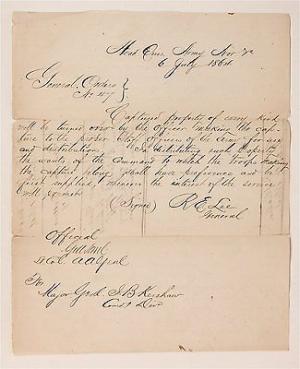 Head Qrs Army Nor Va
6 July 1864
General Orders }
No 47 }
Captured property of every kind
will be turned over by the Officer making the cap-
ture to the proper Staff officers of the Army for use
and distribution. In distributing such Property
the wants of the Command to which the Troops making
the capture belong shall have preference and be
first supplied, whenever the interest of the service
will permit
(Signed) R E Lee
General
Official
Lt Col. A A Genl
For
Major Genl J B Kershaw
Comd'g Div